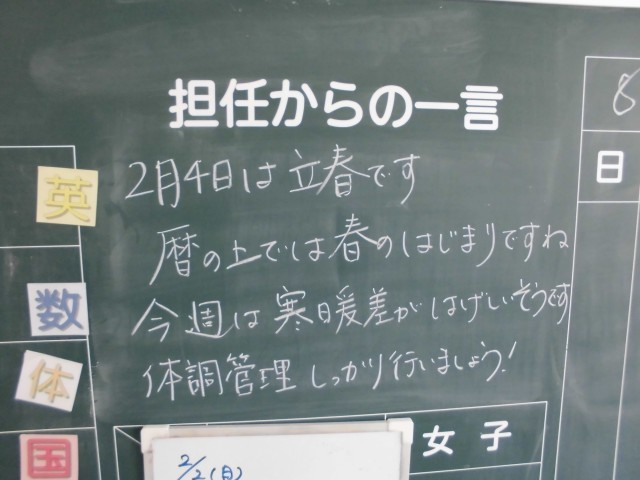 担任からの一言
2月4日は立春です
暦の上では春のはじまりですね
今週は寒暖差がはげしいそうです
体調管理しっかり行いましょう!
英
数
体
国
8
日
女子
2/2(日)